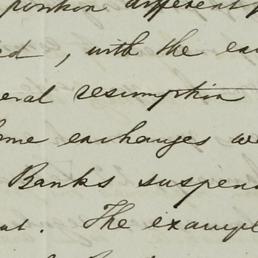 portion different
, with the
eral resumption
me exchanges we
Banks suspen
at. The exampl